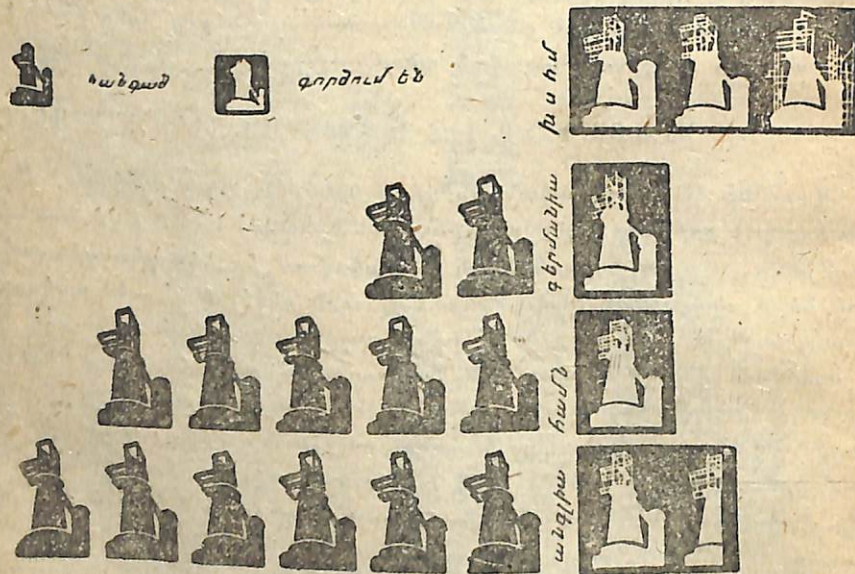 հանգած
գործում են
խսհմ
գերմանիա
համն
անգլիա